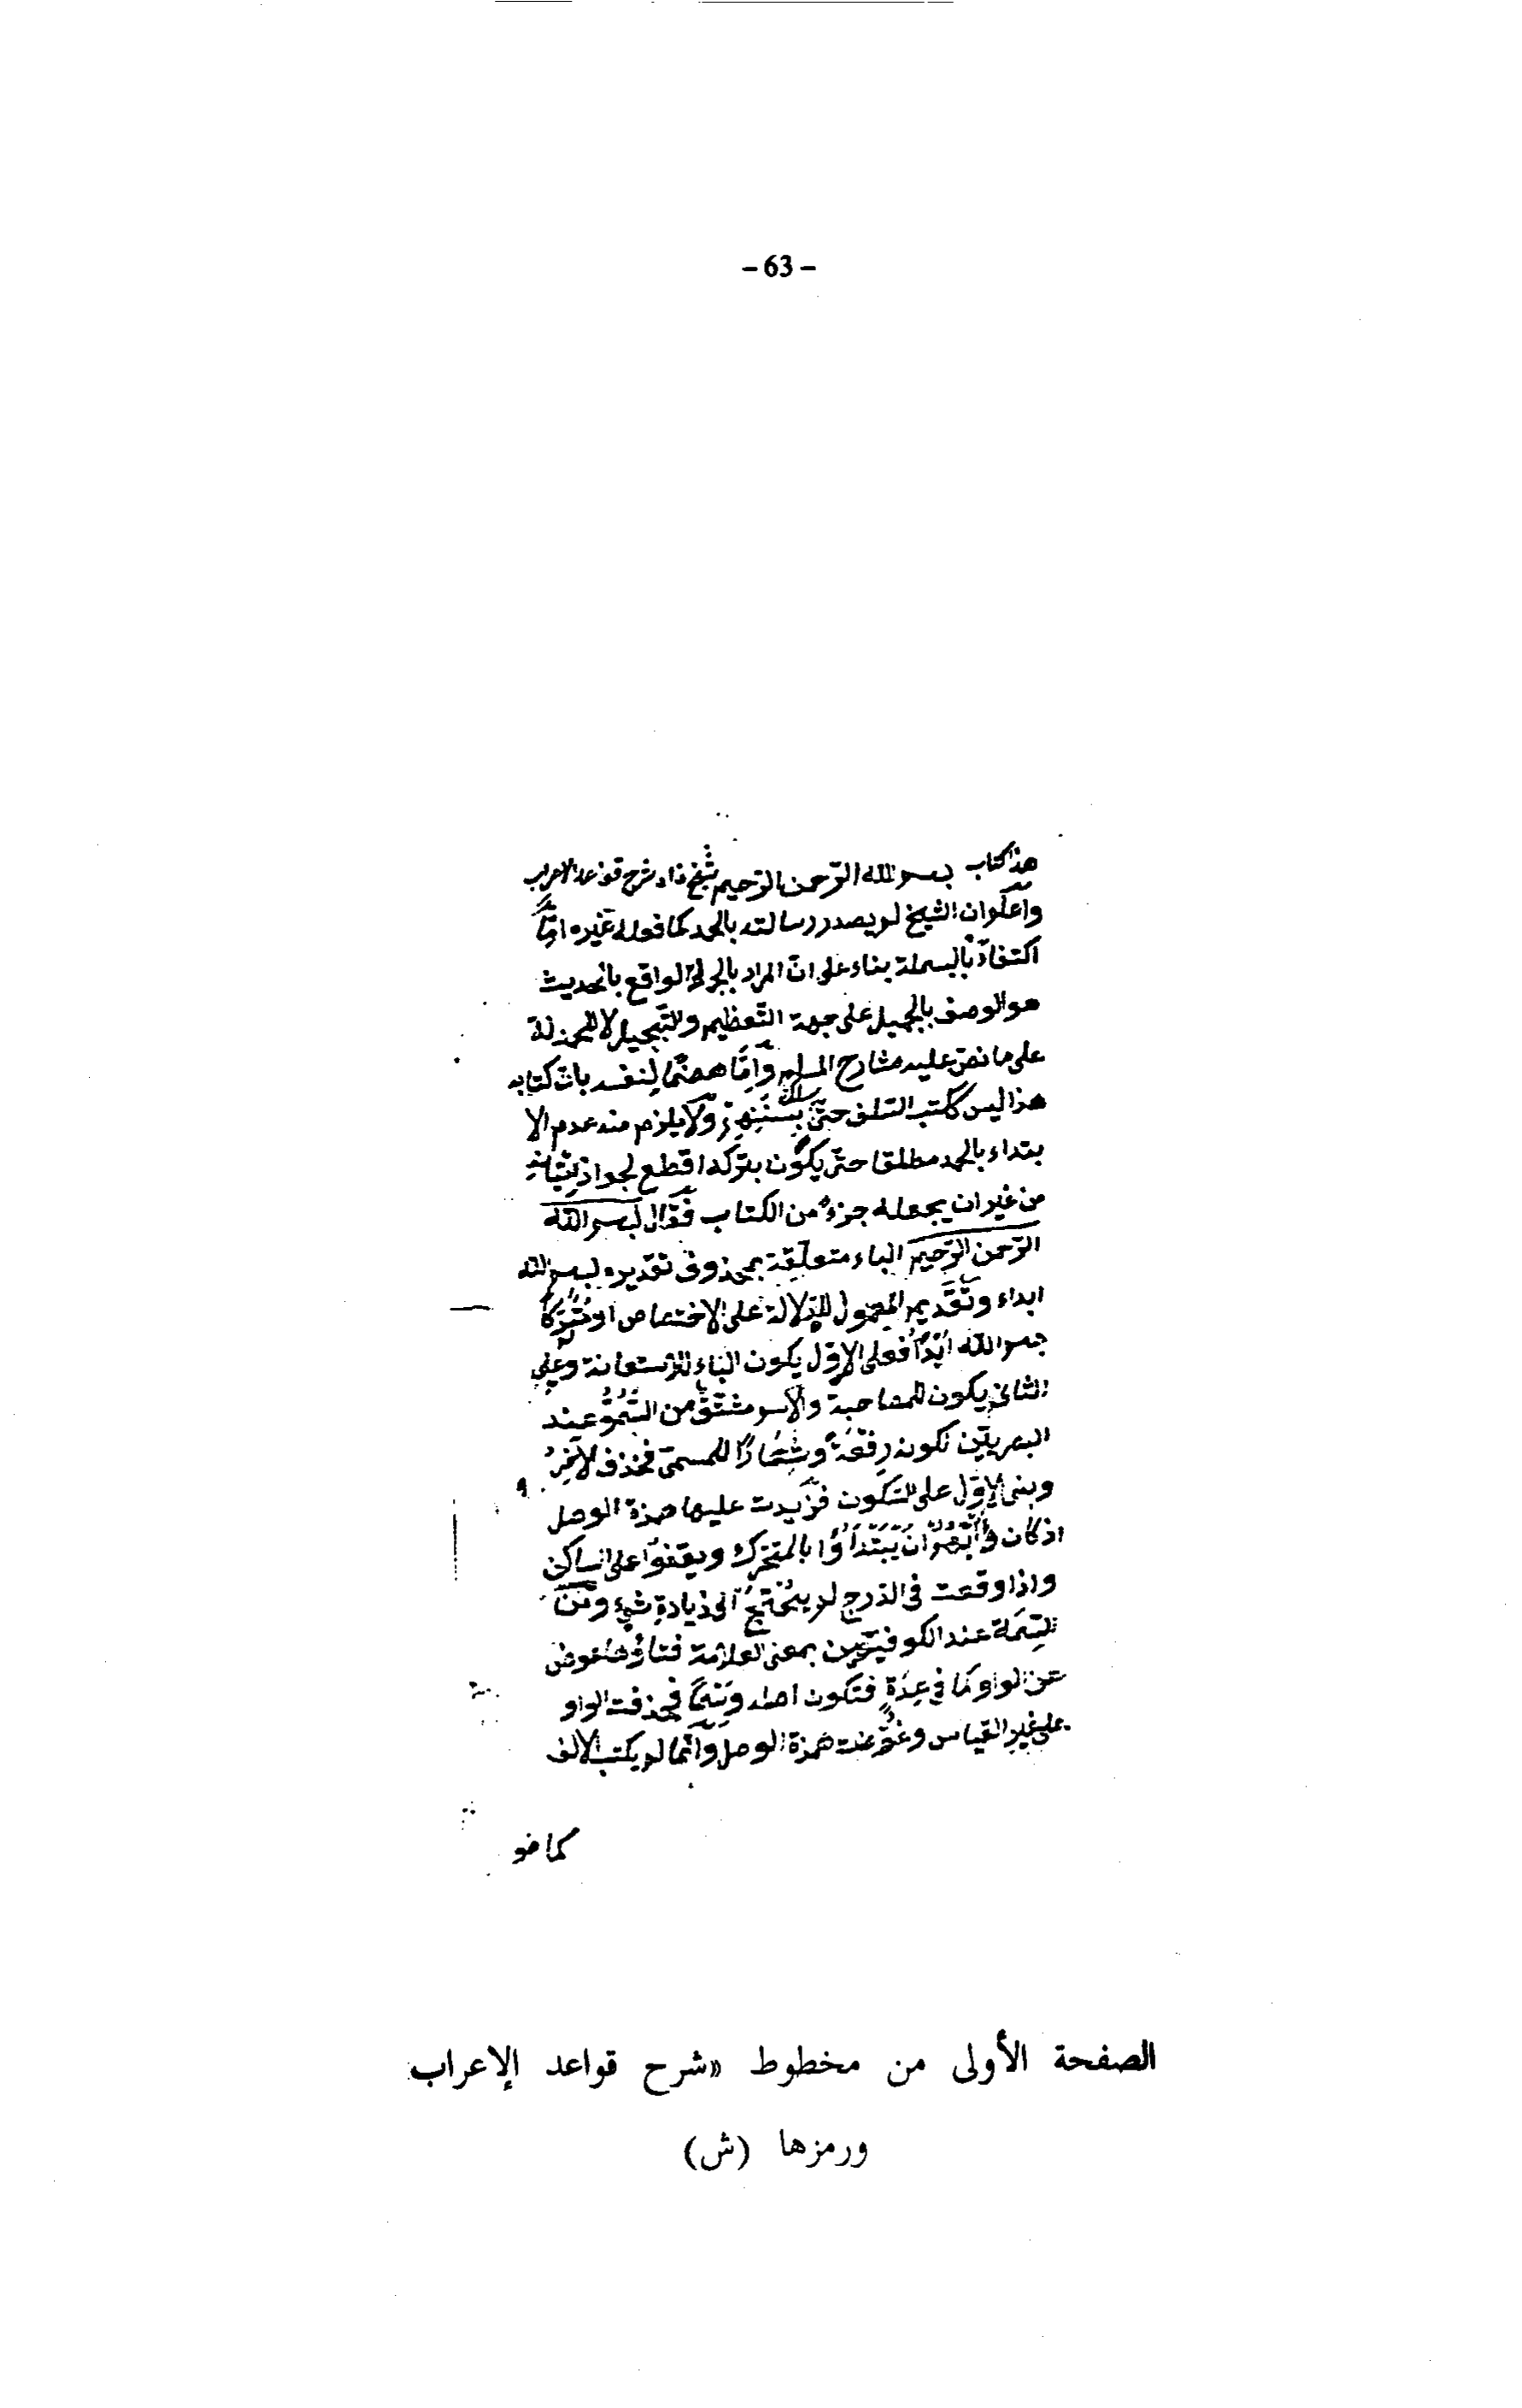 - 63 -
هذا كتاب بسم الله الرحمن الرحيم شيخ زاده شرح قواعد الاعراب
واعلم ان الشيخ لم يصدر رسالته بالحمد كما فعله غيره امّا
اكتفاءً بالبسملة بناء على انّ المراد بالحمد الواقع بالحديث
هو الوصف بالجميل على جهة التعظيم والتبجيل لا الحمدلة
على ما نصّ عليه شارح المسلم وامّا هضمًا لنفسه بانّ كتابه
هذا ليس ككتب السلف حتّى يسلك بسننهم ولا يلزم منه عدم الا
بتداء بالحمد مطلقا حتّى يكون بتركه اقطع لجواز اتيانه
من غير ان يجعله جزءً من الكتاب فقال بسم الله
الرّحمن الرّحيم الباء متعلّقة بمحذوف تقديره بسم الله
ابداء وتقديم المعمول للدلالة على الاختصاص او متبرّكًا
بسم الله ابدأ فعلى الاوّل يكون الباء للاستعانة وعلى
الثانى يكون للمصاحبة والاسم مشتقّ من السُّمُوّ عند
البصريّين لكونه رفعةً وشعارًا للمسمّى فحذف الآخر
وبنى الاوّل على السّكون فزيدت عليها همزة الوصل
اذ كان دأبهم ان يبتدأوا بالمتحرّك ويقفوا على الساكن
واذا وقعت فى الدرج لم يحتج الى زيادة شىء ومن
السّمة عند الكوفيّين بمعنى العلامة فتاؤها عوض
عن الواو كما فى عدة فتكون اصله وسمًا فحذفت الواو
على غير القياس وعوّضت همزة الوصل وانّما لم يكتب الالف
كما هو
الصفحة الأولى من مخطوط «شرح قواعد الإعراب
ورمزها (ش)